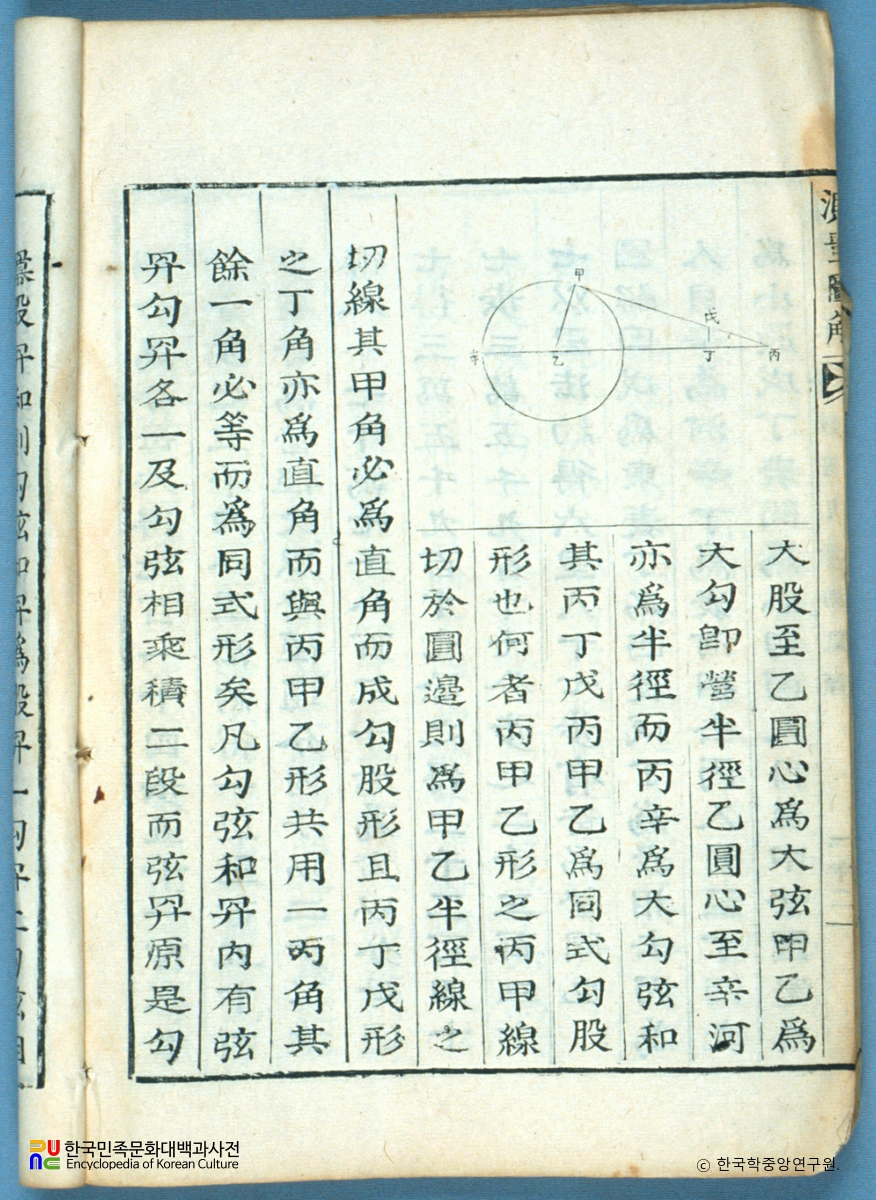 大股至乙圓心為大弦甲乙爲
大勾卽營半徑乙圓心至辛河
亦爲半徑而丙辛爲大勾弦和
其丙丁戊丙甲乙爲同式勾股
形也何者丙甲乙形之丙甲線
切於圓邉則爲甲乙半徑線之
切線其甲角必爲直角而成勾股形且丙丁戊形
之丁角亦爲直角而與丙甲乙形共用一丙角其
餘一角必等而爲同式形矣凡勾弦和冪内有弦
冪勾冪各一及勾弦相乘積二段而弦冪原是勾
甲
戊
辛
乙
丁
丙
한국민족문화대백과사전
Encyclopedia of Korean Culture
© 한국학중앙연구원.